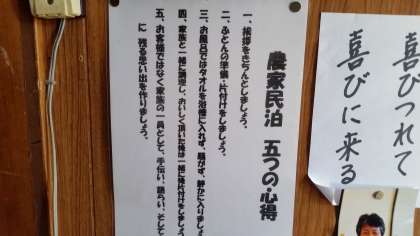 農家民泊 五つの心得
一、挨拶をきちんとしましょう。
二、ふとんの準備・片付けをしましょう。
三、お風呂ではタオルを浴槽に入れず、騒がず、静かに入りましょう。
四、家族と一緒に調理し、おいしく頂いた後は一緒に後片付けをしましょう。
五、お客様ではなく家族の一員として、手伝い、語らい、そして
に残る思い出を作りましょう。
喜びつれて
喜びに来る